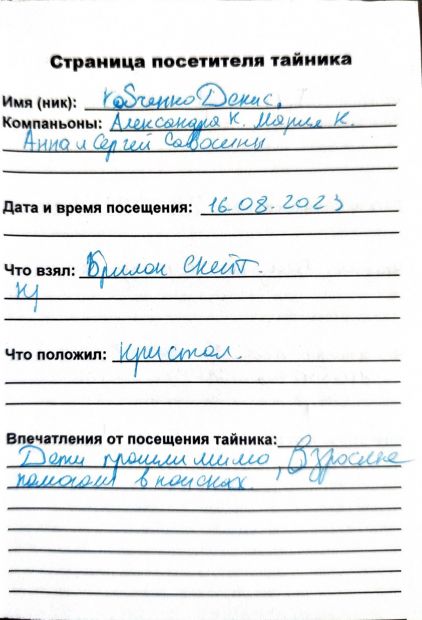 Страница посетителя тайника
Имя (ник): Денис.
Компаньоны: Александра К. Мария К.
Анна и Сергей Савосины
Дата и время посещения: 16.08.2023
Что взял: Брилок Скейт.
Что положил: Кристал.
Впечатления от посещения тайника:
Дети прошли мимо, Взрослые
помогли в поисках.